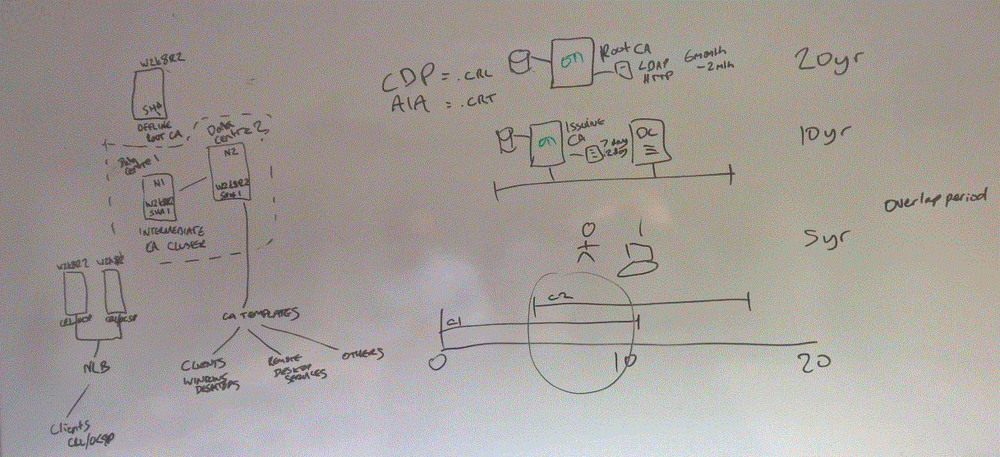 W2k8R2
SHA
OFFLINE
ROOT CA
Data
Centre 2
Centre 1
N2
W2k8R2
SHA1
N1
W2k8R2
SHA1
INTERMEDIATE
CA CLUSTER
W2k8R2
CRL/OCSP
CRL/OCSP
NLB
Clients
CRL/OCSP
CA TEMPLATES
CLIENTS
WINDOWS
DESKTOPS
REMOTE
DESKTOP
SERVICES
OTHERS
CDP = .CRL
AIA = .CRT
Root CA
LDAP
HTTP
6month
20yr
ISSUING
CA
7 day
DC
10yr
5yr
Overlap period
C2
C1
0
10
20